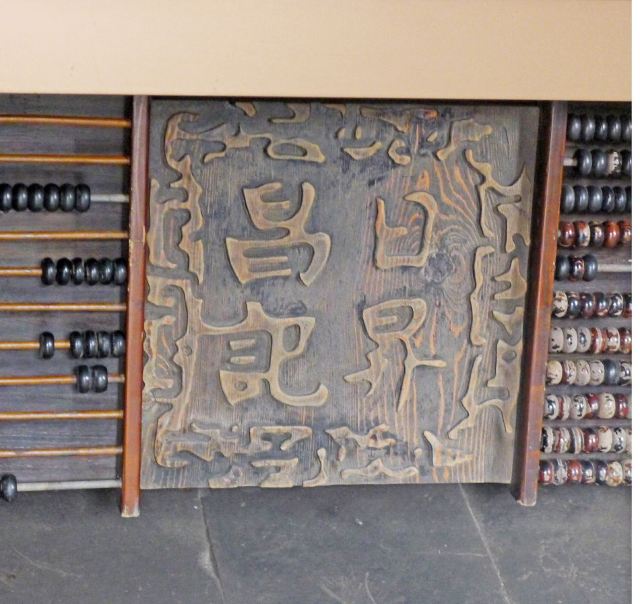 日昇
昌記